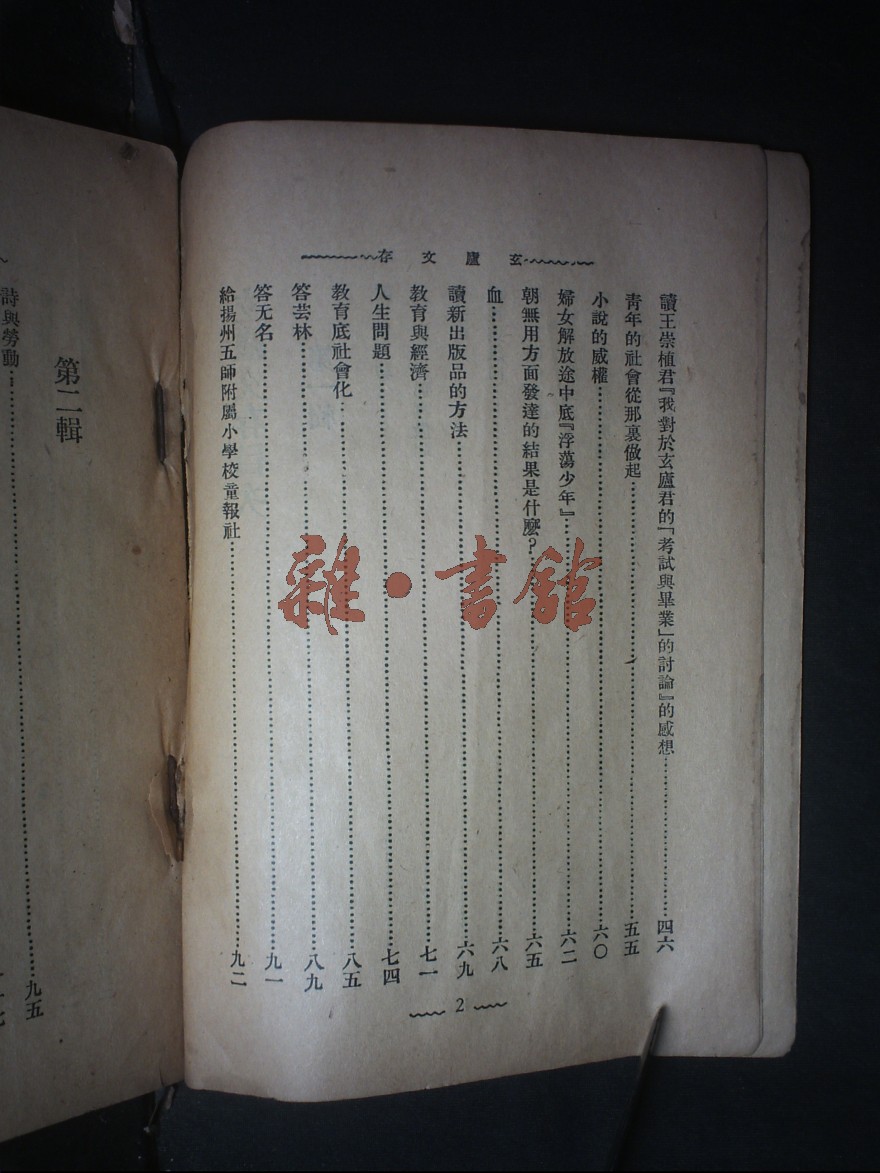 玄廬文存
讀王崇植君『我對於玄廬君的「考試與畢業」的討論』的感想……四六
青年的社會從那裏做起……五五
小說的威權……六〇
婦女解放途中底『浮蕩少年』……六二
朝無用方面發達的結果是什麼？……六五
血……六八
讀新出版品的方法……六九
教育與經濟……七一
人生問題……七四
教育底社會化……八五
答芸林……八九
答无名……九一
給揚州五師附屬小學校童報社……九二
2
第二輯
詩與勞動……九五
雜·書館